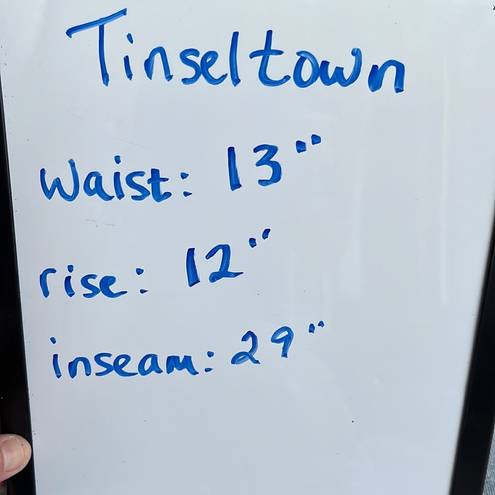 Tinseltown
Waist: 13"
rise: 12"
inseam: 29"